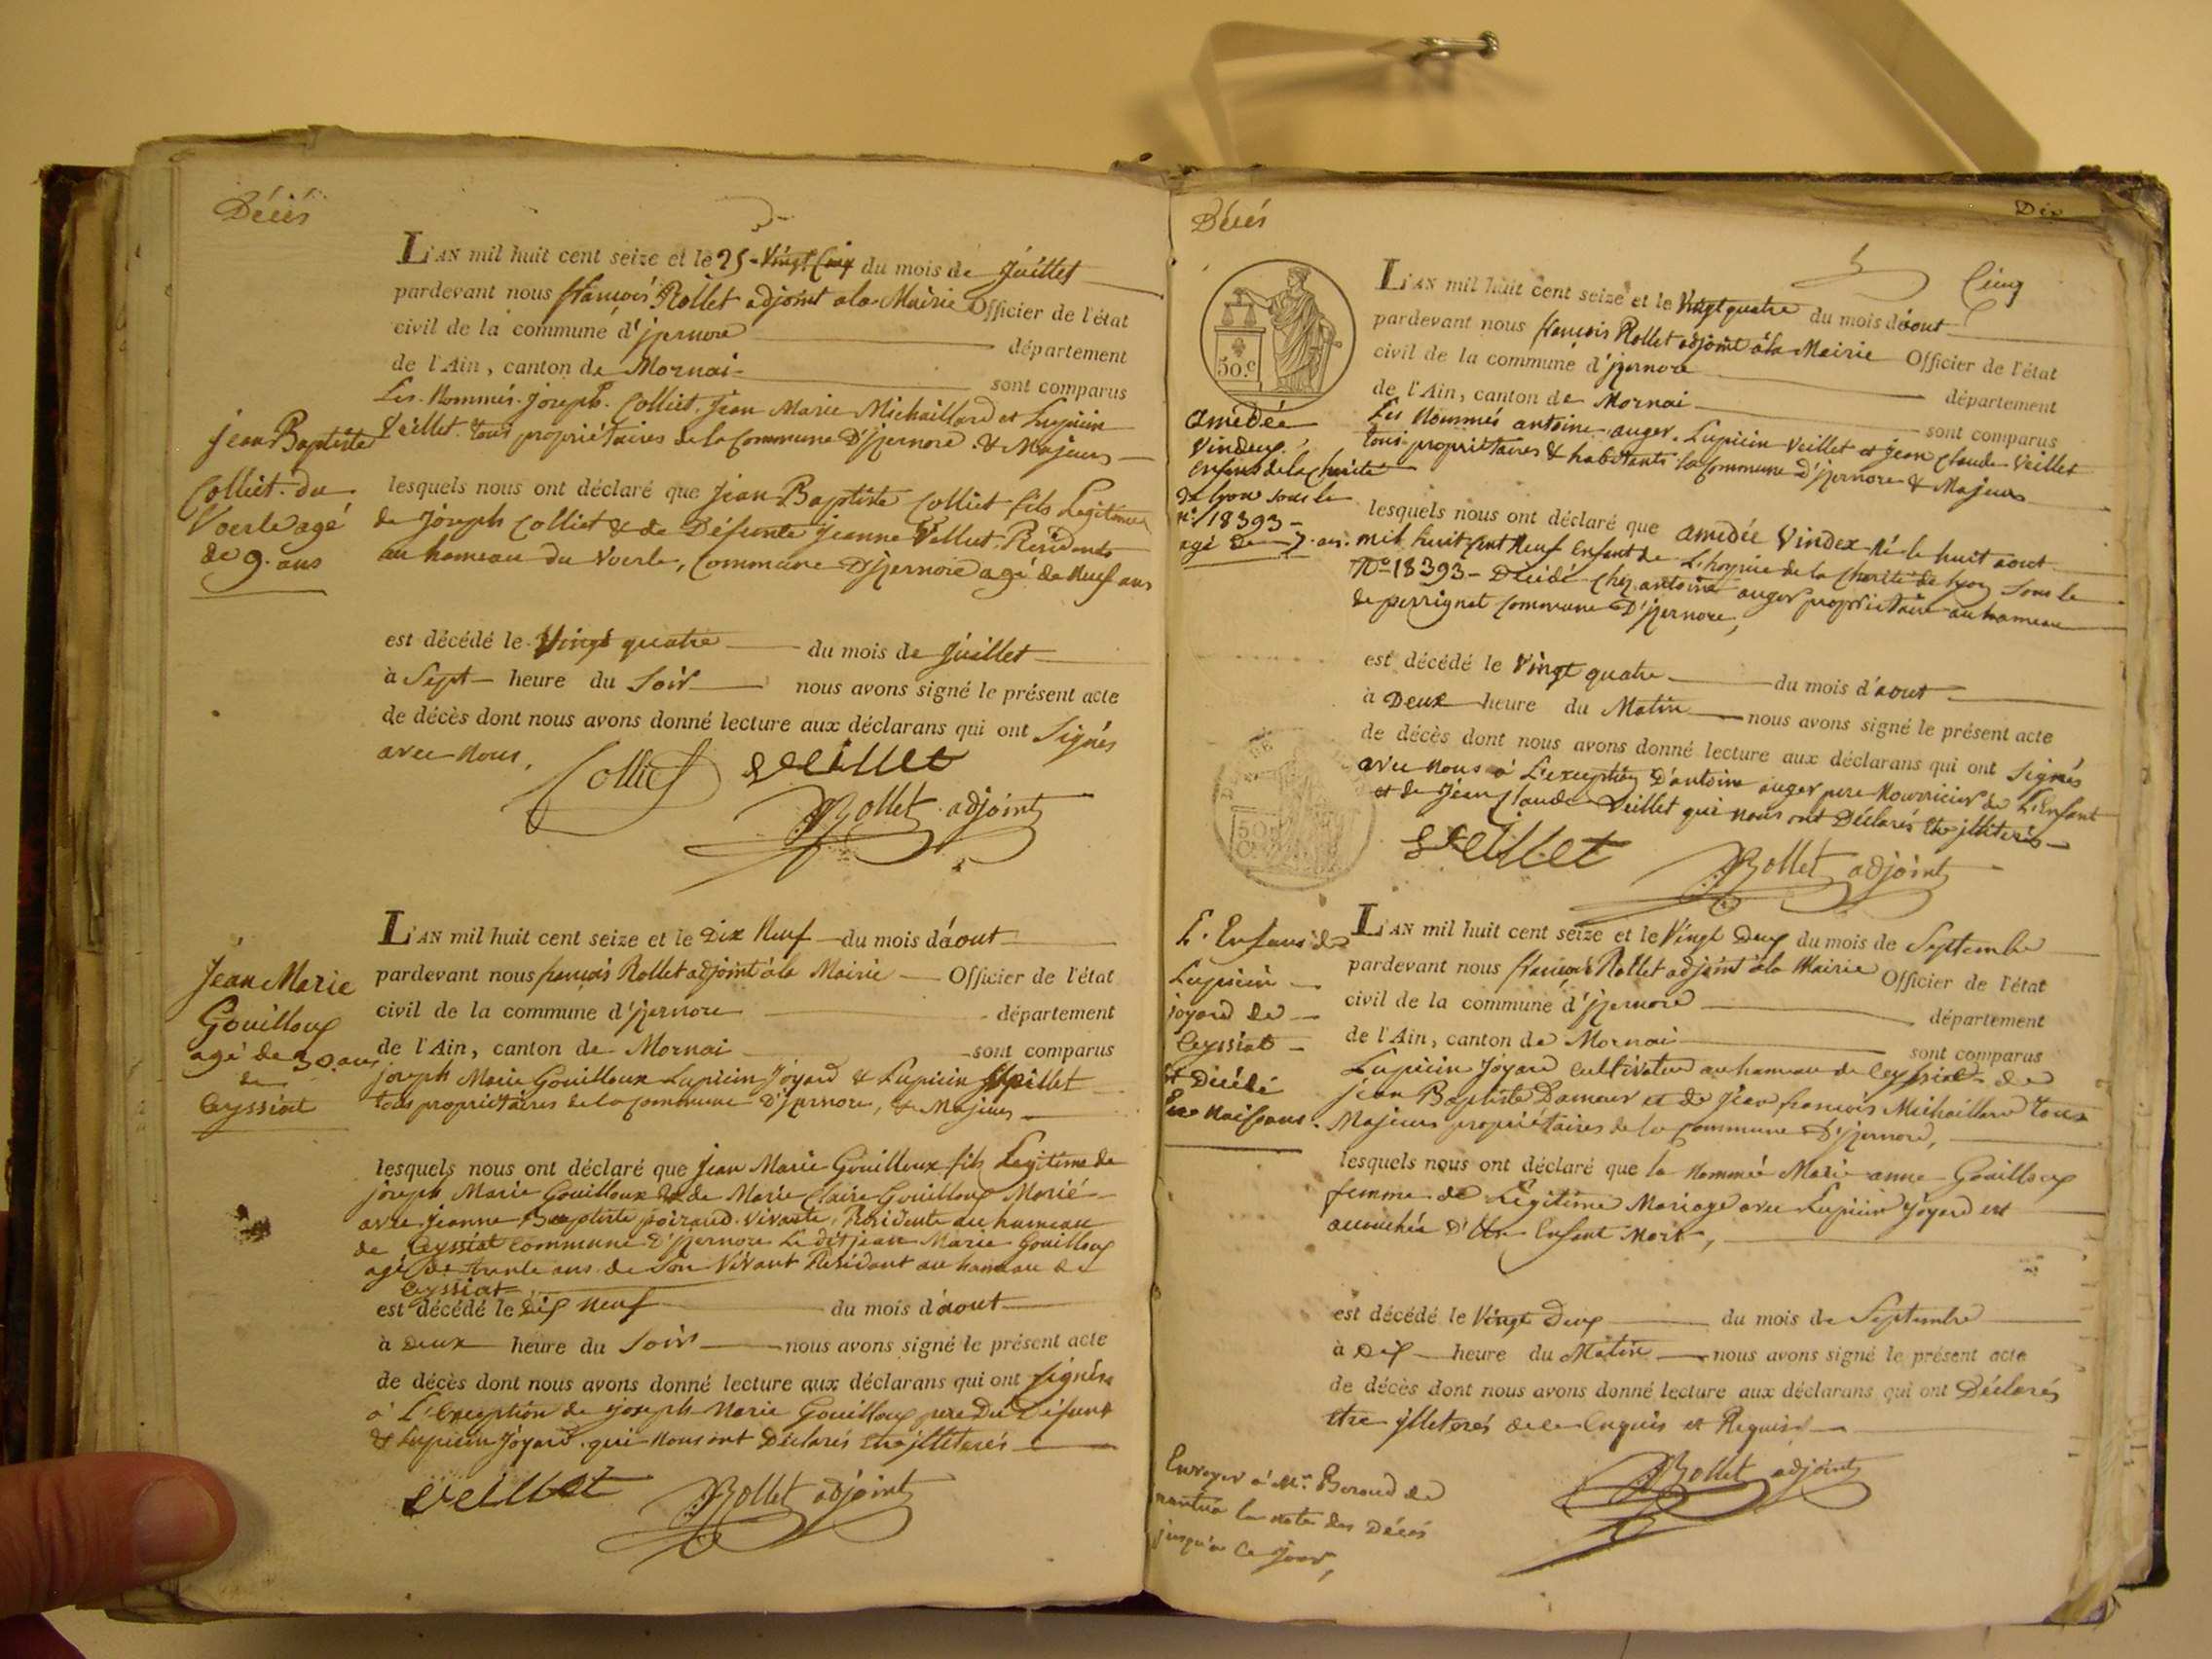 Décès
L'AN mil huit cent seize et le 25 - Vingt Cinq du mois de Juillet
pardevant nous françois Rollet adjoint a la Mairie Officier de l'état
civil de la commune d'jzernore département
de l'Ain, canton de Mornai sont comparus
Les Nommés joseph Colliet, jean Marie Michaillard et Lupicin
Veillet tous propriétaires de la Commune D'jzernore & Majeurs
jean Baptiste
Colliet du
Voerle agé
de 9 ans
lesquels nous ont déclaré que jean Baptiste Colliet fils Legitime
de joseph Colliet & de Défunte jeanne Veilliet Residents
au hameau du Voerle, Commune D'jzernore agé de Neuf ans
est décédé le Vingt quatre du mois de Juillet
à Sept heure du Soir nous avons signé le présent acte
de décès dont nous avons donné lecture aux déclarans qui ont Signés
avec Nous,
Colliet veillet
Rollet adjoint
L'AN mil huit cent seize et le Dix Neuf du mois d'aout
pardevant nous françois Rollet adjoint à la Mairie Officier de l'état
civil de la commune d'jzernore département
de l'Ain, canton de Mornai sont comparus
joseph Marie Gouilloux Lupicin Joyard & Lupicin Veillet
tous propriétaires de la Commune D'jzernore, & Majeurs
Jean Marie
Gouilloux
agé de 30 ans
de
Ceyssiat
lesquels nous ont déclaré que Jean Marie Gouilloux fils Legitime de
joseph Marie Gouilloux & de Marie Claire Gouilloux Marié
avec jeanne Baptiste poiraud vivante, Residente au hameau
de Ceyssiat commune D'jzernore Le dit jean Marie Gouilloux
agé de trente ans de Son Vivant Residant au hameau de
Ceyssiat
est décédé le dix neuf du mois d'aout
à deux heure du Soir nous avons signé le présent acte
de décès dont nous avons donné lecture aux déclarans qui ont signés
à L'Exception de joseph Marie Gouilloux pere Du Défunt
& Lupicin Joyard qui Nous ont Déclarés etre jlliterés
veillet Rollet adjoint
Décès
Dix
Cinq
50.c
L'AN mil huit cent seize et le Vingt quatre du mois d'aout
pardevant nous françois Rollet adjoint à la Mairie Officier de l'état
civil de la commune d'jzernore département
de l'Ain, canton de Mornai sont comparus
Les Nommés antoine auger, Lupicin Veillet et jean Claude Veillet
tous propriétaires & habitants la Commune D'jzernore & Majeurs
amedée
Vindex,
enfans de la Charité
de lyon sous le
n° 18393 -
agé de 7 ans
lesquels nous ont déclaré que amedée Vindex Né le huit aout
mil huit Cent Neuf Enfant de L'hospice de la Charité de Lyon Sous le
N° 18393 - Décidé Chez antoine auger propriétaire au hameau
de perrignat Commune D'jzernore,
est décédé le Vingt quatre du mois d'aout
à Deux heure du Matin nous avons signé le présent acte
de décès dont nous avons donné lecture aux déclarans qui ont Signés
avec Nous à L'exception D'antoine auger pere Nourricier de L'Enfant
et de jean Claude Veillet qui nous ont Déclarés Etre jlliterés
veillet Rollet adjoint
L'AN mil huit cent seize et le Vingt Deux du mois de Septembre
pardevant nous françois Rollet adjoint à la Mairie Officier de l'état
civil de la commune d'jzernore département
de l'Ain, canton de Mornai sont comparus
Lupicin Joyard Cultivateur au hameau de Ceyssiat de
jean Baptiste Dameur et de Jean françois Michaillard tous
Majeurs propriétaires de la Commune D'jzernore,
L'Enfans de
Lupicin
joyard de
Ceyssiat
et Décidé
En Naissans
lesquels nous ont déclaré que la Nommée Marie anne Gouilloux
femme de Légitime Mariage avec Lupicin Joyard est
accouchée D'Un Enfant Mort,
est décédé le Vingt Deux du mois de Septembre
à Dix heure du Matin nous avons signé le présent acte
de décès dont nous avons donné lecture aux déclarans qui ont Déclarés
etre jlleterés de ce Enquis et Requis
Rollet adjoint
Envoyer à Mr. Beroud de
nantua la note des Décés
jusqu'à Ce jour,